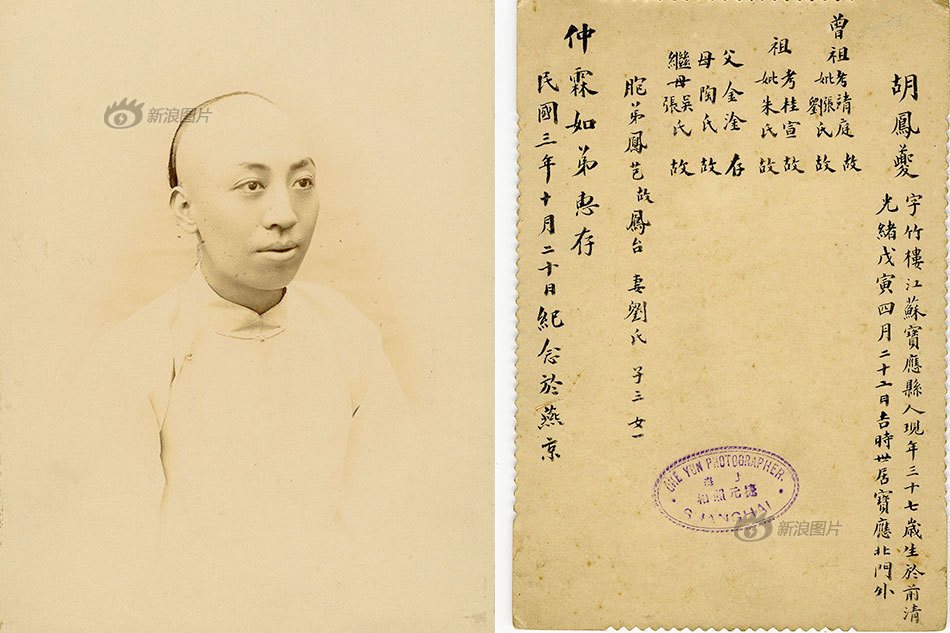 新浪图片
胡鳳夔 字竹樓江蘇寶應縣人現年三十七歲生於前清
光緒戊寅四月二十二日吉時世居寶應北門外
曾祖考靖庭 故
妣劉張氏 故
祖考桂宣 故
妣朱氏 故
父金淦 存
母陶氏 故
繼母吳張氏 故
胞弟鳳芭故鳳台 妻劉氏 子三女一
仲霖如弟惠存
民國三年十月二十日紀念於燕京
CHE YUN PHOTOGRAPHER.
上海
捷元照相
SHANGHAI
新浪图片